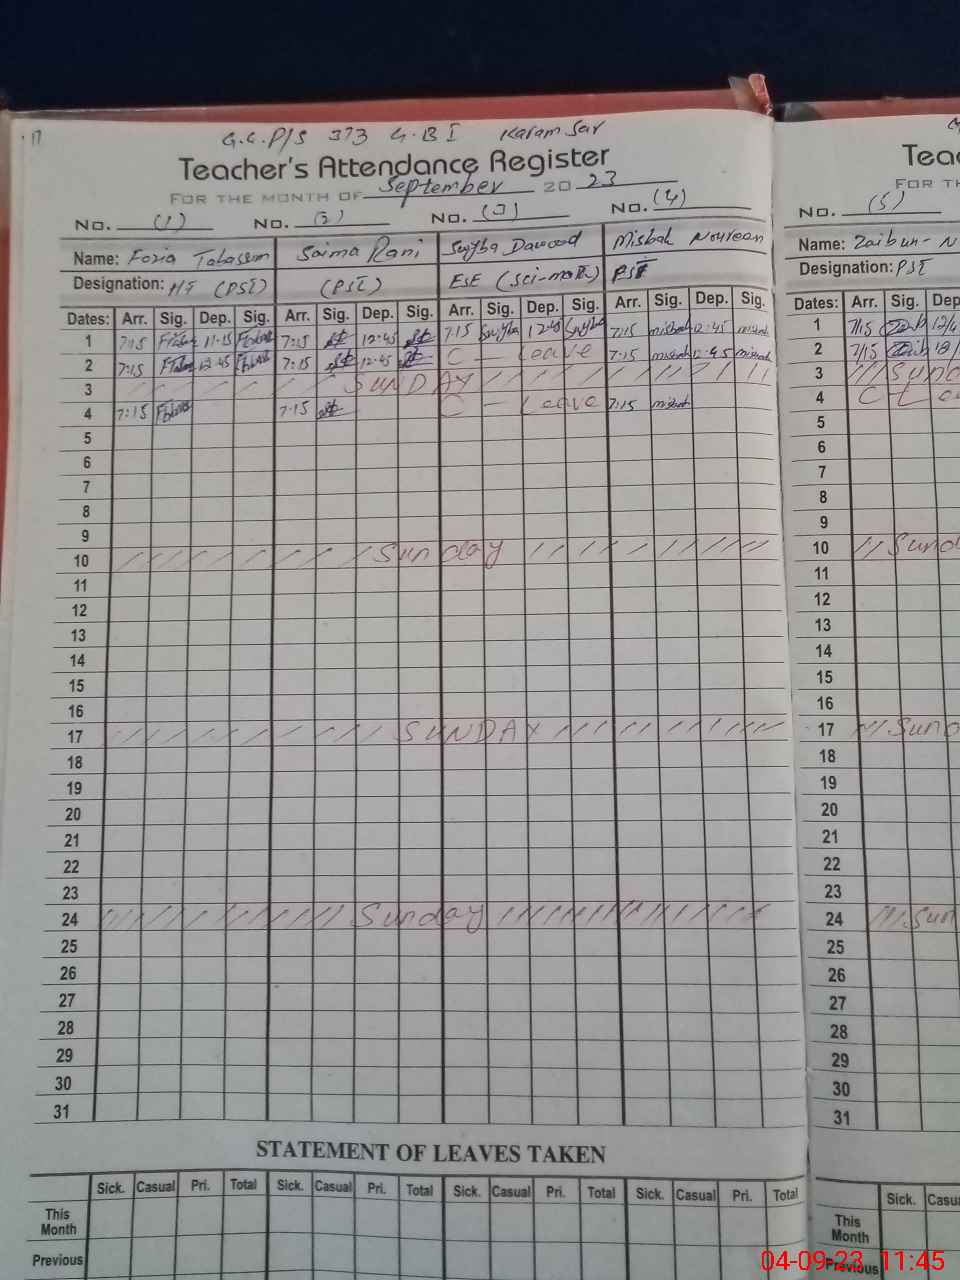 G.G.P/S 373 G.B I Karam Sar
Teacher's Attendance Register
FOR THE MONTH OF September 2023
No. (1) No. (2) No. (3) No. (4)
Name: Fozia Tabassum Saima Rani Dawood Misbah Noureen
Designation: (PST) (PST) ESE (Sci-math) PST
Dates: Arr. Sig. Dep. Sig. Arr. Sig. Dep. Sig. Arr. Sig. Dep. Sig. Arr. Sig. Dep. Sig.
1 7:15 11:15 7:15 12:45 7:15 12:45 7:15 misbah 12:45 misbah
2 7:15 12:45 7:15 12:45 C - Leave 7:15 misbah 12:45 misbah
3 SUNDAY
4 7:15 7:15 C - Leave 7:15 misbah
5
6
7
8
9
10 Sunday
11
12
13
14
15
16
17 SUNDAY
18
19
20
21
22
23
24 Sunday
25
26
27
28
29
30
31
STATEMENT OF LEAVES TAKEN
Sick. Casual Pri. Total Sick. Casual Pri. Total Sick. Casual Pri. Total Sick. Casual Pri. Total
This
Month
Previous
Teac
FOR TH
No. (5)
Name: Zaibun-N
Designation: PST
Dates: Arr. Sig. Dep
1 7/15 Zaib 12/4
2 7/15 Zaib
3 Sund
4 C-Lea
5
6
7
8
9
10 Sund
11
12
13
14
15
16
17 Sund
18
19
20
21
22
23
24 Sun
25
26
27
28
29
30
31
Sick. Casua
This
Month
Previous
04-09-23 11:45